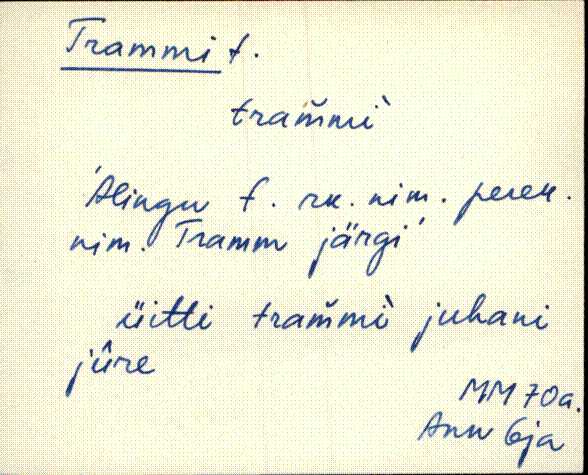 Trammi t.
tram̆mì
'Alingu t. rk. nim. perek.
nim. Tramm järgi'
üitti tram̆mì juhani
jûre
MM 70a.
Ann Oja